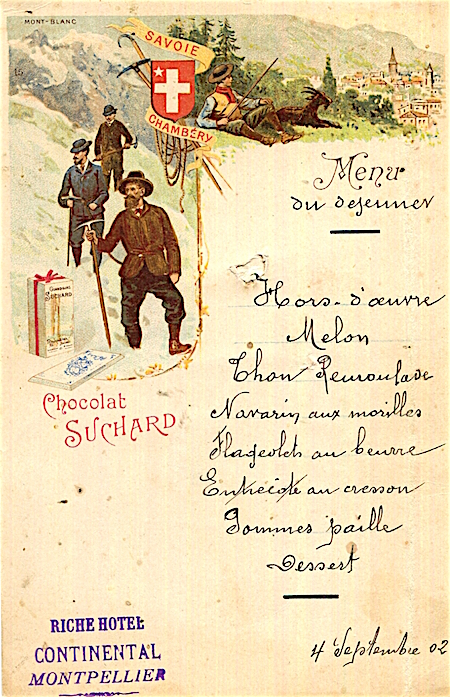 MONT-BLANC
15
SAVOIE
CHAMBÉRY
Menu
du dejeuner
Hors-d'œuvre
Melon
Thon Remoulade
Navarin aux morilles
Flageolets au beurre
Entrecôte au cresson
Pommes paille
Dessert
SUCHARD
Chocolat
SUCHARD
RICHE HOTEL
CONTINENTAL
MONTPELLIER
4 Septembre 02